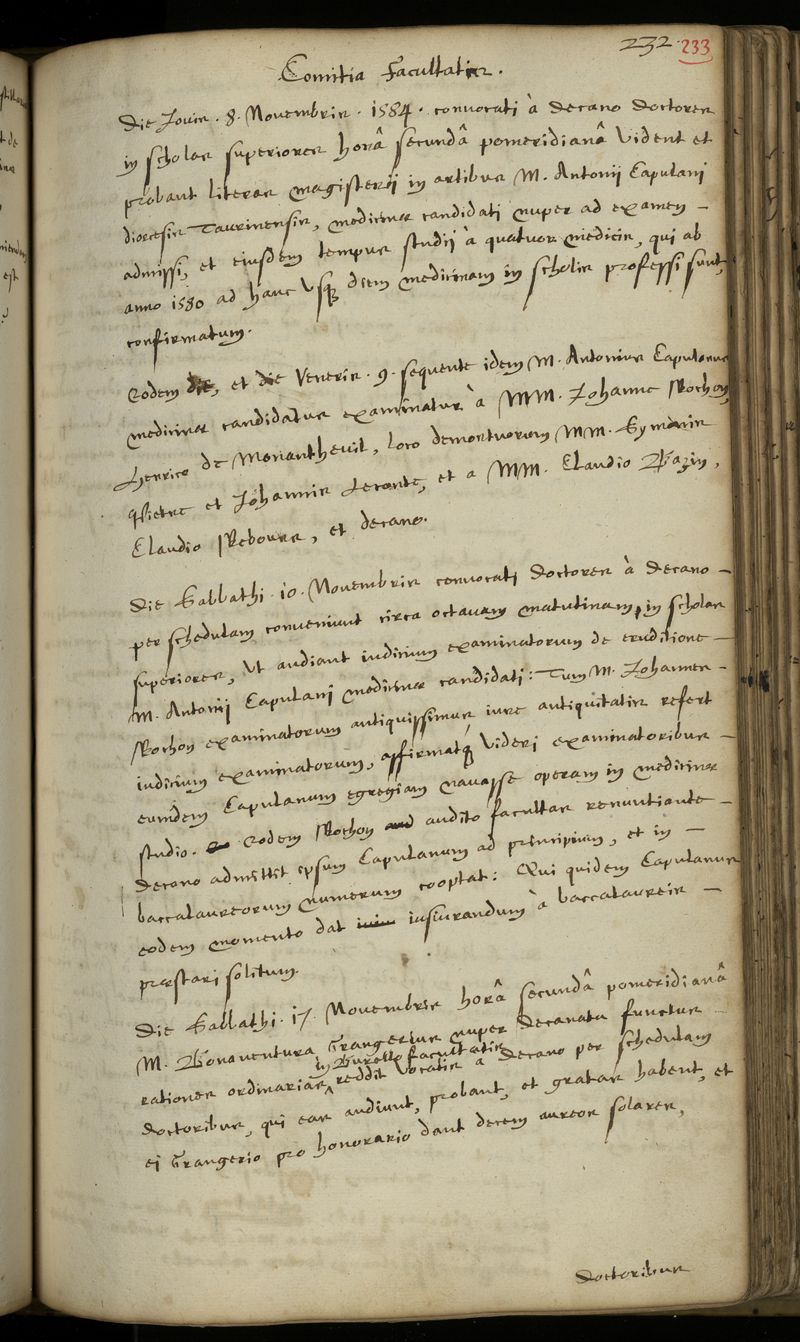 232 233
Comitia Facultatis.
Die Jovis. 8. Novembris. 1584. convocati à decano doctores
in scholas superiores horâ secundâ pomeridianâ vident et
probant literas magisterij in artibus M. Antonij Capulani
diœcesis Taurinensis, medicinæ candidati nuper ad examen –
admissi, et eiusdem tempus studij à quatuor medicis, qui ab
anno 1580 ad hanc usq; diem medicinam in scholis professi sunt,
confirmatum.
Eodem die, et die Veneris. 9. sequente idem M. Antonius Capulanus
medicinæ candidatus examinatur à MM. Johanne Rochon
Henrico de Monantheuil, loco demortuorum MM. Symonis
Pietre et Johannis Leconte, et a MM. Claudio Bazin,
Claudio Rebours, et decano.
Die Sabbathi. 10. Novembris convocati doctores à decano –
per schedulam conveniunt circa octavam matutinam, in scholas
superiores, ut audiant iudicium examinatorum de eruditione –
M. Antonij Capulani medicinæ candidati: Tum M. Johannes –
Rochon examinatorum antiquissimus iure antiquitatis refert
iudicium examinatorum, affirmatq; videri examinatoribus –
eumdem Capulanum egregiam navasse operam in medicinæ
studio. Eodem Rochon audito facultas renuntiante –
decano admittit ipsum Capulanum ad principium, et in –
baccalaureorum numerum cooptat: Qui quidem Capulanus
eodem momento dat iusiurandum à baccalaureis –
præstari solitum.
Die Sabbathi. 17. Novembris horâ secundâ pomeridianâ
M. Bonaventura Grangerius nuper decanatu functus –
in Burello facultatis
rationes ordinarias reddit vocatis a decano per schedulam
doctoribus, qui eas audiunt, probant, et gratas habent, et
ei Grangerio pro honorario dant decem aureos solares,
doctoribus